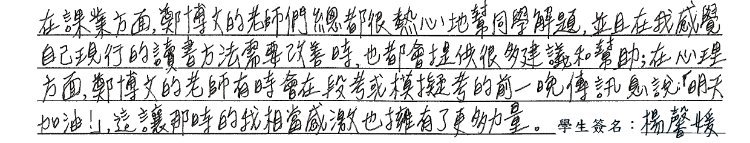 在課業方面，鄭博文的老師們總都很熱心地幫同學解題，並且在我感覺
自己現行的讀書方法需要改善時，也都會提供很多建議和幫助；在心理
方面，鄭博文的老師有時會在段考或模擬考的前一晚傳訊息說：「明天
加油！」，這讓那時的我相當感激也擁有了更多力量。 學生簽名：楊馨媛